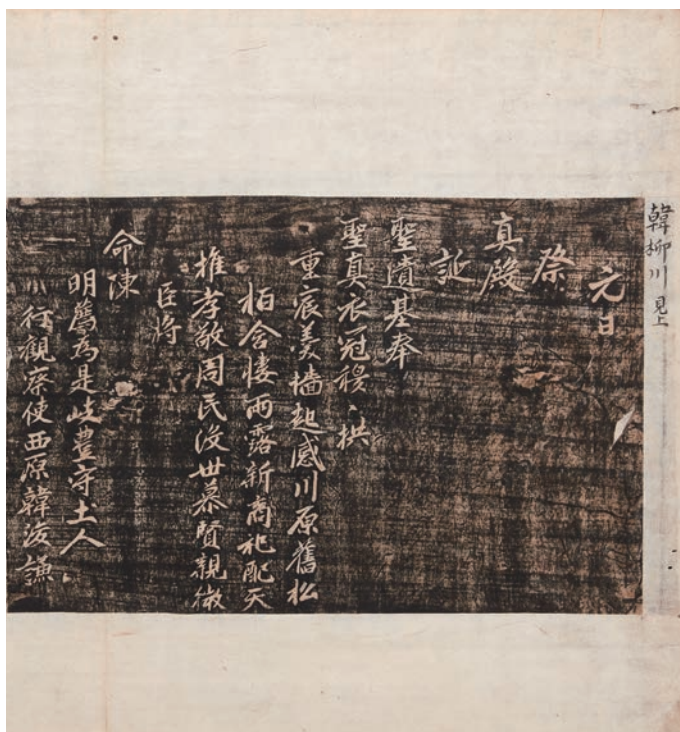 韓柳川 見上
元日
祭
真殿
誕
聖遺基奉
聖真衣冠穆〻拱
重宸羹墻起感川原舊松
栢含悽雨露新商祀配天
推孝敬周民沒世慕賢親微
臣將
命陳
明薦為是岐豊守土人
行觀察使西原韓浚謙